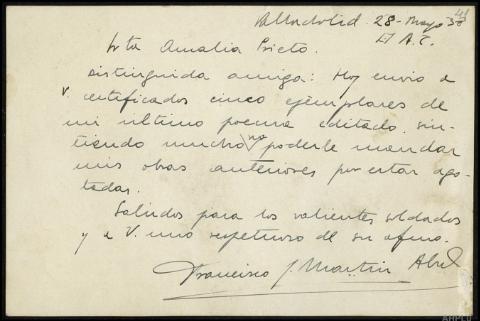 Valladolid 28-Mayo 38
II A.T.
Srta Amalia Prieto.
Distinguida amiga: Hoy envio a
V. certificados cinco ejemplares de
mi último poema editado, sin-
tiendo mucho no poderle mandar
mis obras anteriores por estar ago-
tadas.
Saludos para los valientes soldados
y a V. uno respetuoso de su afmo.
Francisco J. Martín Abril